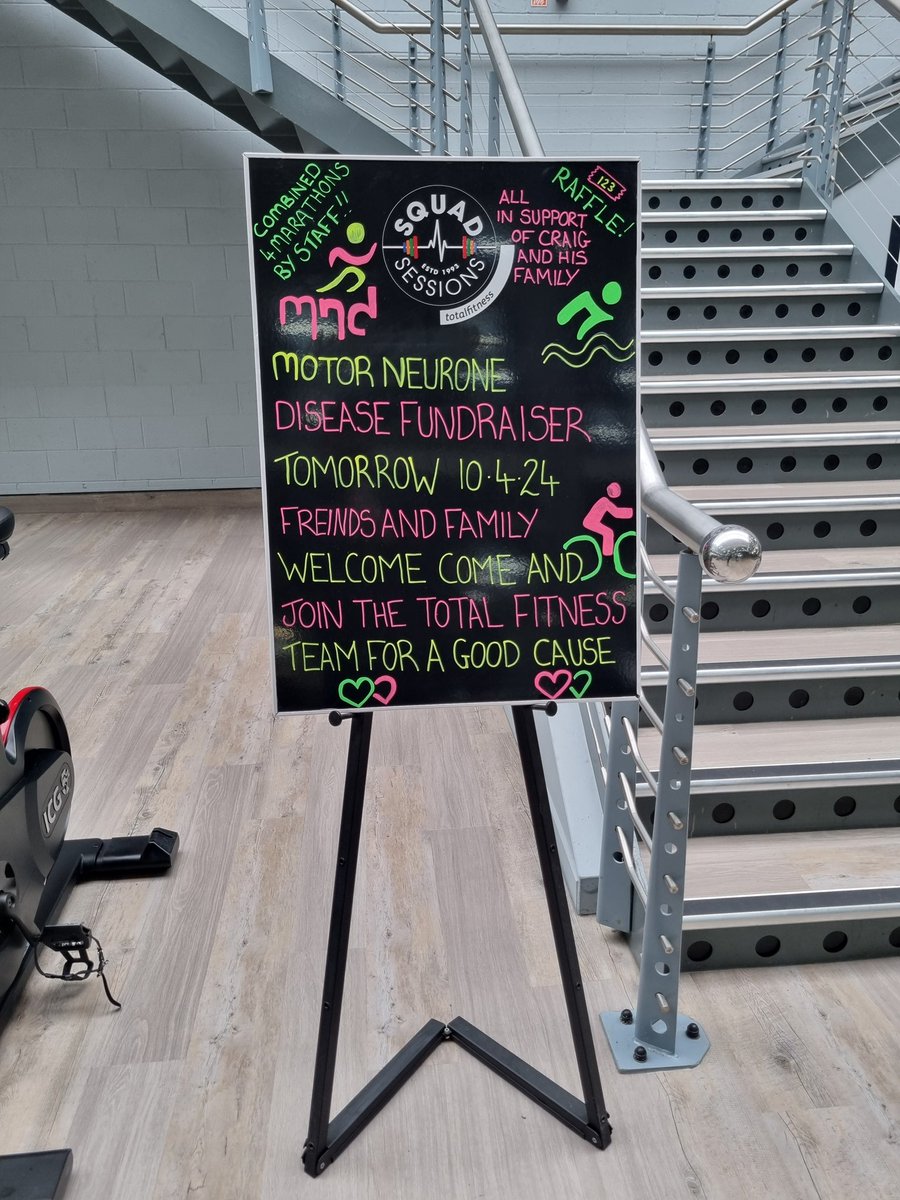 COMBINED
4 MARATHONS
BY STAFF!!
mnd
SQUAD
ESTD 1993
SESSIONS
totalfitness
ALL
IN SUPPORT
OF CRAIG
AND HIS
FAMILY
123
RAFFLE!
MOTOR NEURONE
DISEASE FUNDRAISER
TOMORROW 10.4.24
FREINDS AND FAMILY
WELCOME COME AND
JOIN THE TOTAL FITNESS
TEAM FOR A GOOD CAUSE
ICG